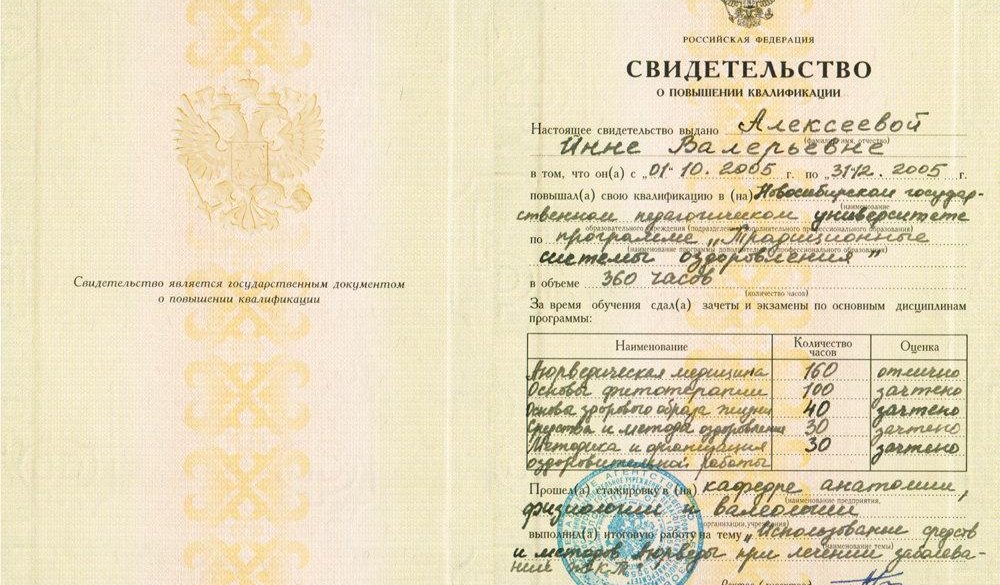 Свидетельство является государственным документом
о повышении квалификации
РОССИЙСКАЯ ФЕДЕРАЦИЯ
СВИДЕТЕЛЬСТВО
О ПОВЫШЕНИИ КВАЛИФИКАЦИИ
Настоящее свидетельство выдано Алексеевой
(фамилия, имя, отчество)
Инне Валерьевне
в том, что он(а) с „01“ 10. 2005 г. по 31.12. 2005 г.
повышал(а) свою квалификацию в (на) Новосибирском государ-
(наименование
ственном педагогическом университете
образовательного учреждения (подразделения) дополнительного профессионального образования)
по программе „Традиционные
(наименование программы дополнительного профессионального образования)
системы оздоровления“
в объеме 360 часов
(количество часов)
За время обучения сдал(а) зачеты и экзамены по основным дисциплинам
программы:
Наименование Количество часов Оценка
Аюрведическая медицина 160 отлично
Основы фитотерапии 100 зачтено
Основы здорового образа жизни 40 зачтено
Средства и метода оздоровления 30 зачтено
Методика и организация 30 зачтено
оздоровительной работы
Прошел(а) стажировку в (на) кафедре анатомии,
(наименование предприятия,
физиологии и валеологии
организации, учреждения)
выполнил(а) итоговую работу на тему „Использование средств
(наименование темы)
и методов Аюрведы при лечении заболева-
ний ЖКТ“